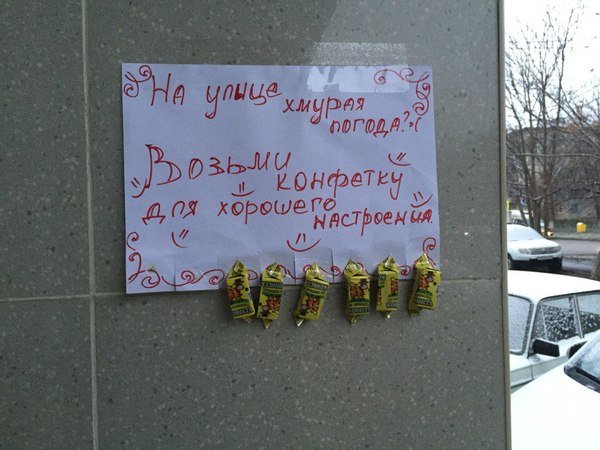 На улице хмурая
погода?=(
Возьми конфетку
для хорошего настроения.